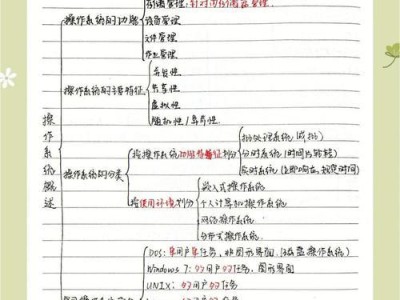 存储管理:针对内存储器管理.
操作系统的功能
设备管理
文件管理
作业管理
并发性
操作系统的主要特征
共享性
虚拟性
随机性/异步性
操作系统概述
批处理系统(成批)
按操作系统功能特征划分
分时系统(时间片轮转)
操作系统的分类
实时系统(立即响应、规定时间)
按使用环境划分
嵌入式操作系统
个人计算机操作系统
网络操作系统
分布式操作系统
DOS:单用户单任务,非图形界面.(磁盘操作系统)
Windows 7:多用户多任务,图形界面
UNIX:多用户多任务